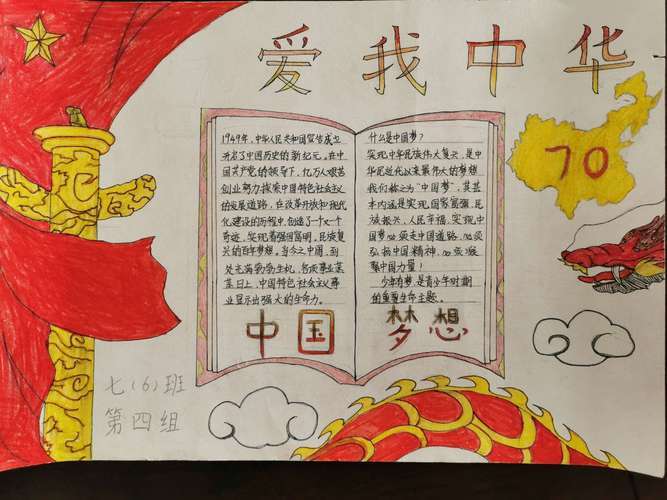 爱我中华
1949年,中华人民共和国宣告成立
开启了中国历史的新纪元。在中
国共产党的领导下,亿万人艰苦
创业努力探索中国特色社会主义
的发展道路。在改革开放和现代
化建设的历程中,创造了一个又一个
奇迹,实现着强国富明,民族复
兴的百年梦想。当今之中国,到
处充满勃勃生机,各项事业蒸
蒸日上,中国特色社会主义事
业显示出强大的生命力。
什么是中国梦?
实现中华民族伟大复兴,是中
华民近代以来最伟大的梦想
我们称之为"中国梦",其基
本内涵是实现国家富强,民
族振兴,人民幸福。实现中
国梦必须走中国道路,必须
弘扬中国精神,必须凝
聚中国力量!
少年有梦,是青少年时期
的重要生命主题。
中国 梦想
70
七(6)班
第四组